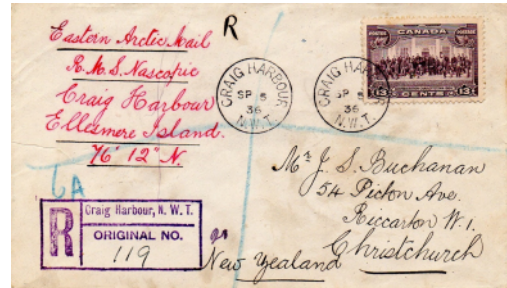 Eastern Arctic Mail
R.M.S. Nascopie
Craig Harbour
Ellesmere Island.
76° 12" N.
R
CRAIG HARBOUR
SP 5
36
N.W.T.
CRAIG HARBOUR
SP 5
36
N.W.T.
POSTES POSTAGE
CANADA
13 CENTS 13
Mr J. S. Buchanan
54 Picton Ave.
Riccarton W.1.
Christchurch
New Zealand
R
Craig Harbour, N. W. T.
ORIGINAL NO.
119